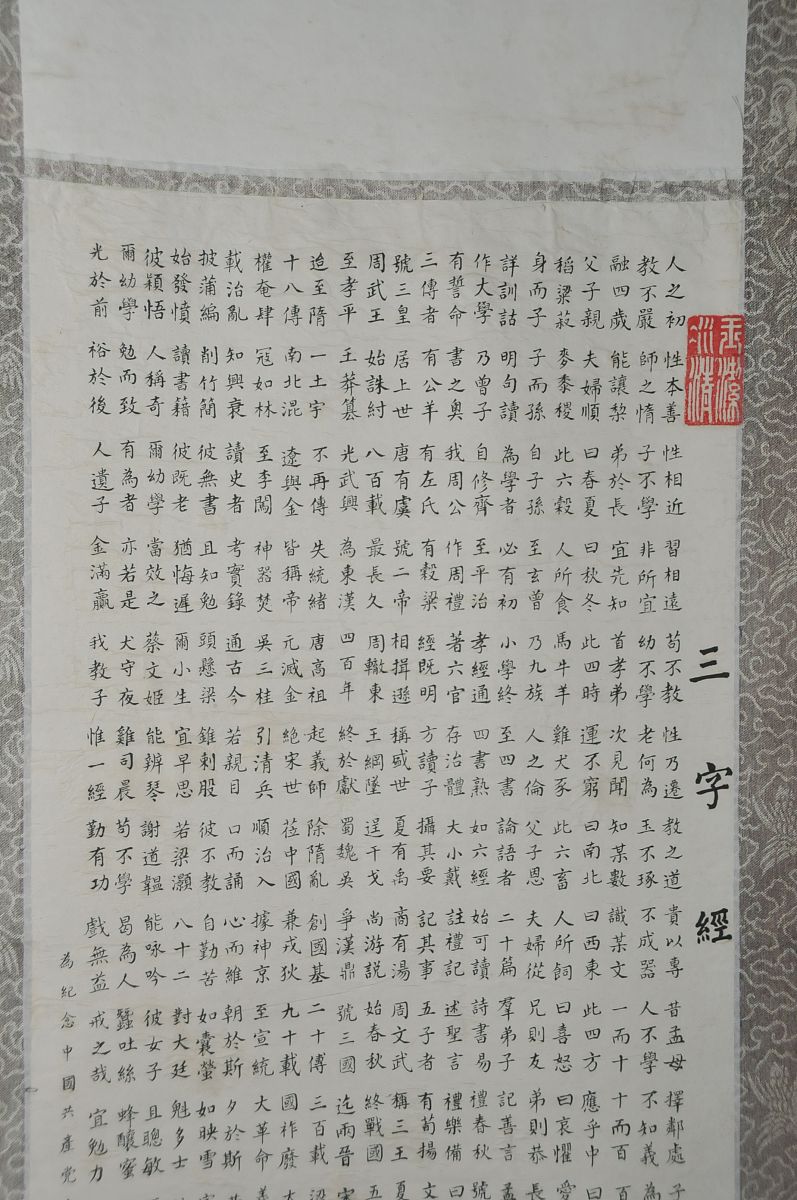 三字經
玉潔冰清
人之初 性本善 性相近 習相遠 苟不教 性乃遷 教之道 貴以專 昔孟母 擇鄰處 子
教不嚴 師之惰 子不學 非所宜 幼不學 老何為 玉不琢 不成器 人不學 不知義 為
融四歲 能讓梨 弟於長 宜先知 首孝弟 次見聞 知某數 識某文 一而十 十而百 百
父子親 夫婦順 曰春夏 曰秋冬 此四時 運不窮 曰南北 曰西東 此四方 應乎中 曰
稻粱菽 麥黍稷 此六穀 人所食 馬牛羊 雞犬豕 此六畜 人所飼 曰喜怒 曰哀懼 愛
身而子 子而孫 自子孫 至玄曾 乃九族 人之倫 父子恩 夫婦從 兄則友 弟則恭 長
詳訓詁 明句讀 為學者 必有初 小學終 至四書 論語者 二十篇 羣弟子 記善言 孟
作大學 乃曾子 自修齊 至平治 孝經通 四書熟 如六經 始可讀 詩書易 禮春秋 號
有誓命 書之奧 我周公 作周禮 著六官 存治體 大小戴 註禮記 述聖言 禮樂備 曰
三傳者 有公羊 有左氏 有穀梁 經既明 方讀子 撮其要 記其事 五子者 有荀揚 文
號三皇 居上世 唐有虞 號二帝 相揖遜 稱盛世 夏有禹 商有湯 周文武 稱三王 夏
周武王 始誅紂 八百載 最長久 周轍東 王綱墜 逞干戈 尚游說 始春秋 終戰國 五
至孝平 王莽篡 光武興 為東漢 四百年 終於獻 蜀魏吳 爭漢鼎 號三國 迄兩晉
迨至隋 一土宇 不再傳 失統緒 唐高祖 起義師 除隋亂 創國基 二十傳 三百載 梁
十八傳 南北混 遼與金 皆稱帝 元滅金 絕宋世 莅中國 兼戎狄 九十載 國祚廢
權奄肆 寇如林 至李闖 神器焚 吳三桂 引清兵 順治入 據神京 至宣統 大革命
載治亂 知興衰 讀史者 考實錄 通古今 若親目 口而誦 心而維 朝於斯 夕於斯
披蒲編 削竹簡 彼無書 且知勉 頭懸梁 錐刺股 彼不教 自勤苦 如囊螢 如映雪
始發憤 讀書籍 彼既老 猶悔遲 爾小生 宜早思 若梁灝 八十二 對大廷 魁多士
彼穎悟 人稱奇 爾幼學 當效之 蔡文姬 能辨琴 謝道韞 能咏吟 彼女子 且聰敏
爾幼學 勉而致 有為者 亦若是 犬守夜 雞司晨 苟不學 曷為人 蠶吐絲 蜂釀蜜
光於前 裕於後 人遺子 金滿籯 我教子 惟一經 勤有功 戲無益 戒之哉 宜勉力
為紀念中國共產党